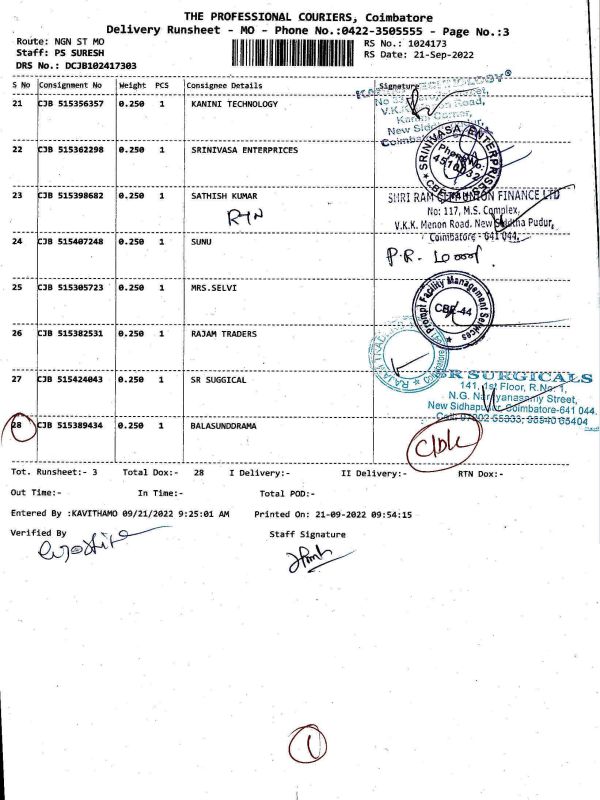 THE PROFESSIONAL COURIERS, Coimbatore
Delivery Runsheet - MO - Phone No.:0422-3505555 - Page No.:3
Route: NGN ST MO
Staff: PS SURESH
DRS No.: DCJB102417303
RS No.: 1024173
RS Date: 21-Sep-2022
S No Consignment No Weight PCS Consignee Details Signature
21 CJB 515356357 0.250 1 KANINI TECHNOLOGY
22 CJB 515362298 0.250 1 SRINIVASA ENTERPRICES
SRINIVASA ENTERPRISES
Phone No:
23 CJB 515398682 0.250 1 SATHISH KUMAR
RTN
SHRI RAM UNION FINANCE LTD
No: 117, M.S. Complex,
V.K.K. Menon Road, New Siddha Pudur,
Coimbatore - 641 044.
24 CJB 515407248 0.250 1 SUNU
P.R.
25 CJB 515305723 0.250 1 MRS.SELVI
Prompt Facility Management Services
CBE-44
26 CJB 515382531 0.250 1 RAJAM TRADERS
RAJAM TRADERS
27 CJB 515424043 0.250 1 SR SUGGICAL
SR SURGICALS
141, 1st Floor, R.No. 1,
N.G. Narayanasamy Street,
New Sidhapudur, Coimbatore-641 044.
28 CJB 515389434 0.250 1 BALASUNDDRAMA
C/DLC
Tot. Runsheet:- 3 Total Dox:- 28 I Delivery:- II Delivery:- RTN Dox:-
Out Time:- In Time:- Total POD:-
Entered By :KAVITHAMO 09/21/2022 9:25:01 AM Printed On: 21-09-2022 09:54:15
Verified By Staff Signature
1